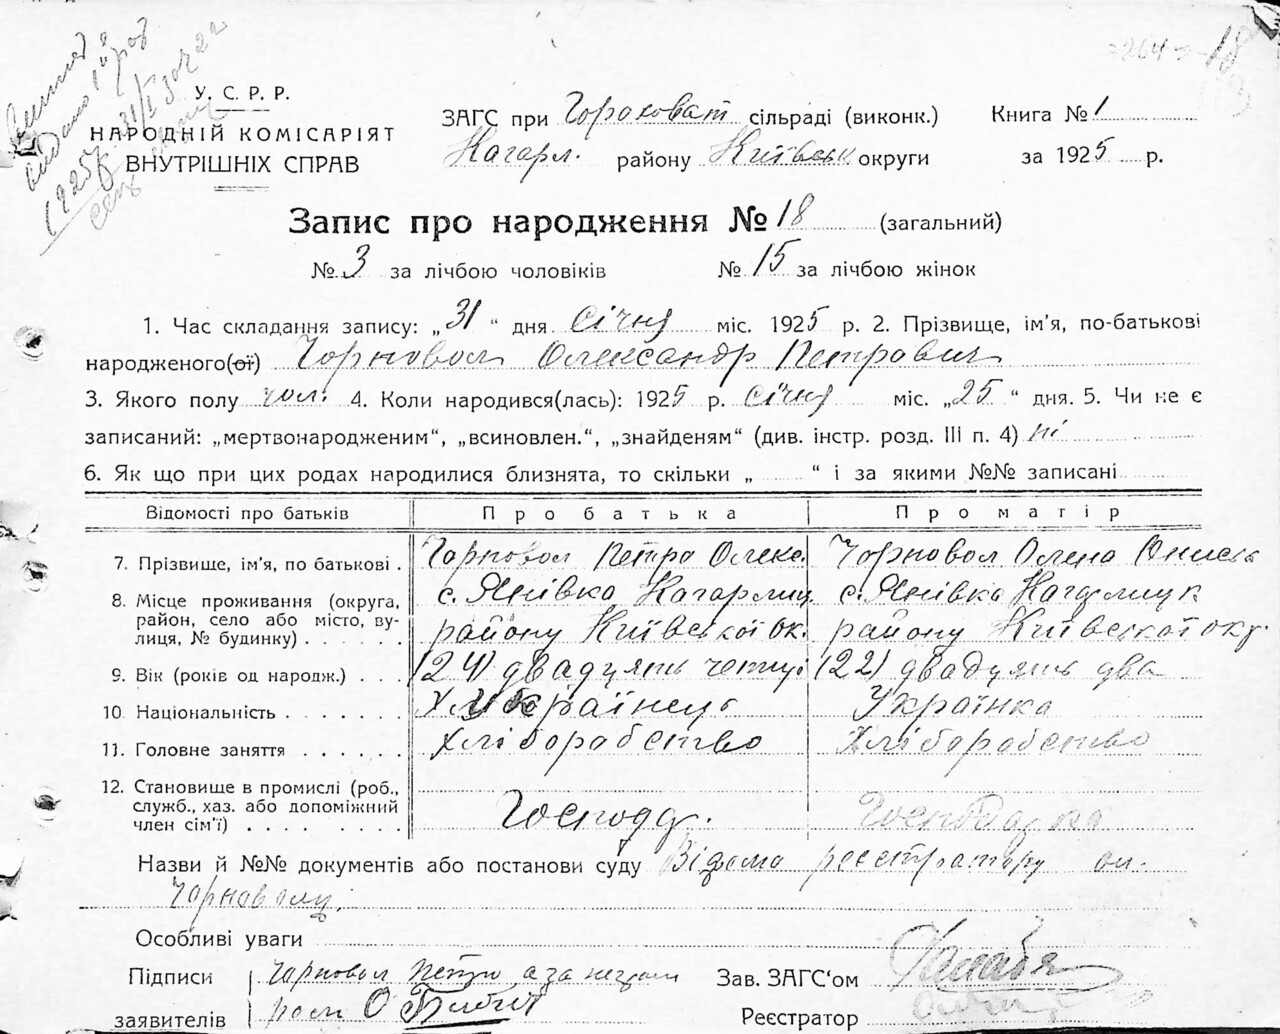 У. С. Р. Р.
НАРОДНІЙ КОМІСАРІЯТ
ВНУТРІШНІХ СПРАВ
ЗАГС при Гороховат сільраді (виконк.) Книга № 1
Кагарл. району Київськ округи за 1925 р.
Запис про народження № 18 (загальний)
№ 3 за лічбою чоловіків № 15 за лічбою жінок
1. Час складання запису: „31“ дня Січня міс. 1925 р. 2. Прізвище, ім'я, по-батькові
народженого(ої) Чорновол Олександр Петрович
3. Якого полу чол. 4. Коли народився(лась): 1925 р. січня міс. „25“ дня. 5. Чи не є
записаний: „мертвонародженим“, „всиновлен.“, „знайденям“ (див. інстр. розд. III п. 4) ні
6. Як що при цих родах народилися близнята, то скільки „ “ і за якими №№ записані
Відомості про батьків Про батька Про матір
7. Прізвище, ім'я, по батькові . Чорновол Петро Олекс. Чорновол Олена
8. Місце проживання (округа, с. Янівка Кагарлиц. с. Янівка
район, село або місто, ву-
лиця, № будинку) . . . . . району Київської ок. району Київської окр.
9. Вік (років од народж.) . . . (24) двадцять четир (22) двадцять два
10. Національність . . . . . . . Українець Українка
11. Головне заняття . . . . . . Хліборобство Хліборобство
12. Становище в промислі (роб.,
служб., хаз. або допоміжний
член сім'ї) . . . . . . . . Господ. Господарка
Назви й №№ документів або постанови суду Відомо реєстратору
Чорноволу.
Особливі уваги
Підписи Чорновол Петро а за
заявителів О
Зав. ЗАГС'ом
Реєстратор